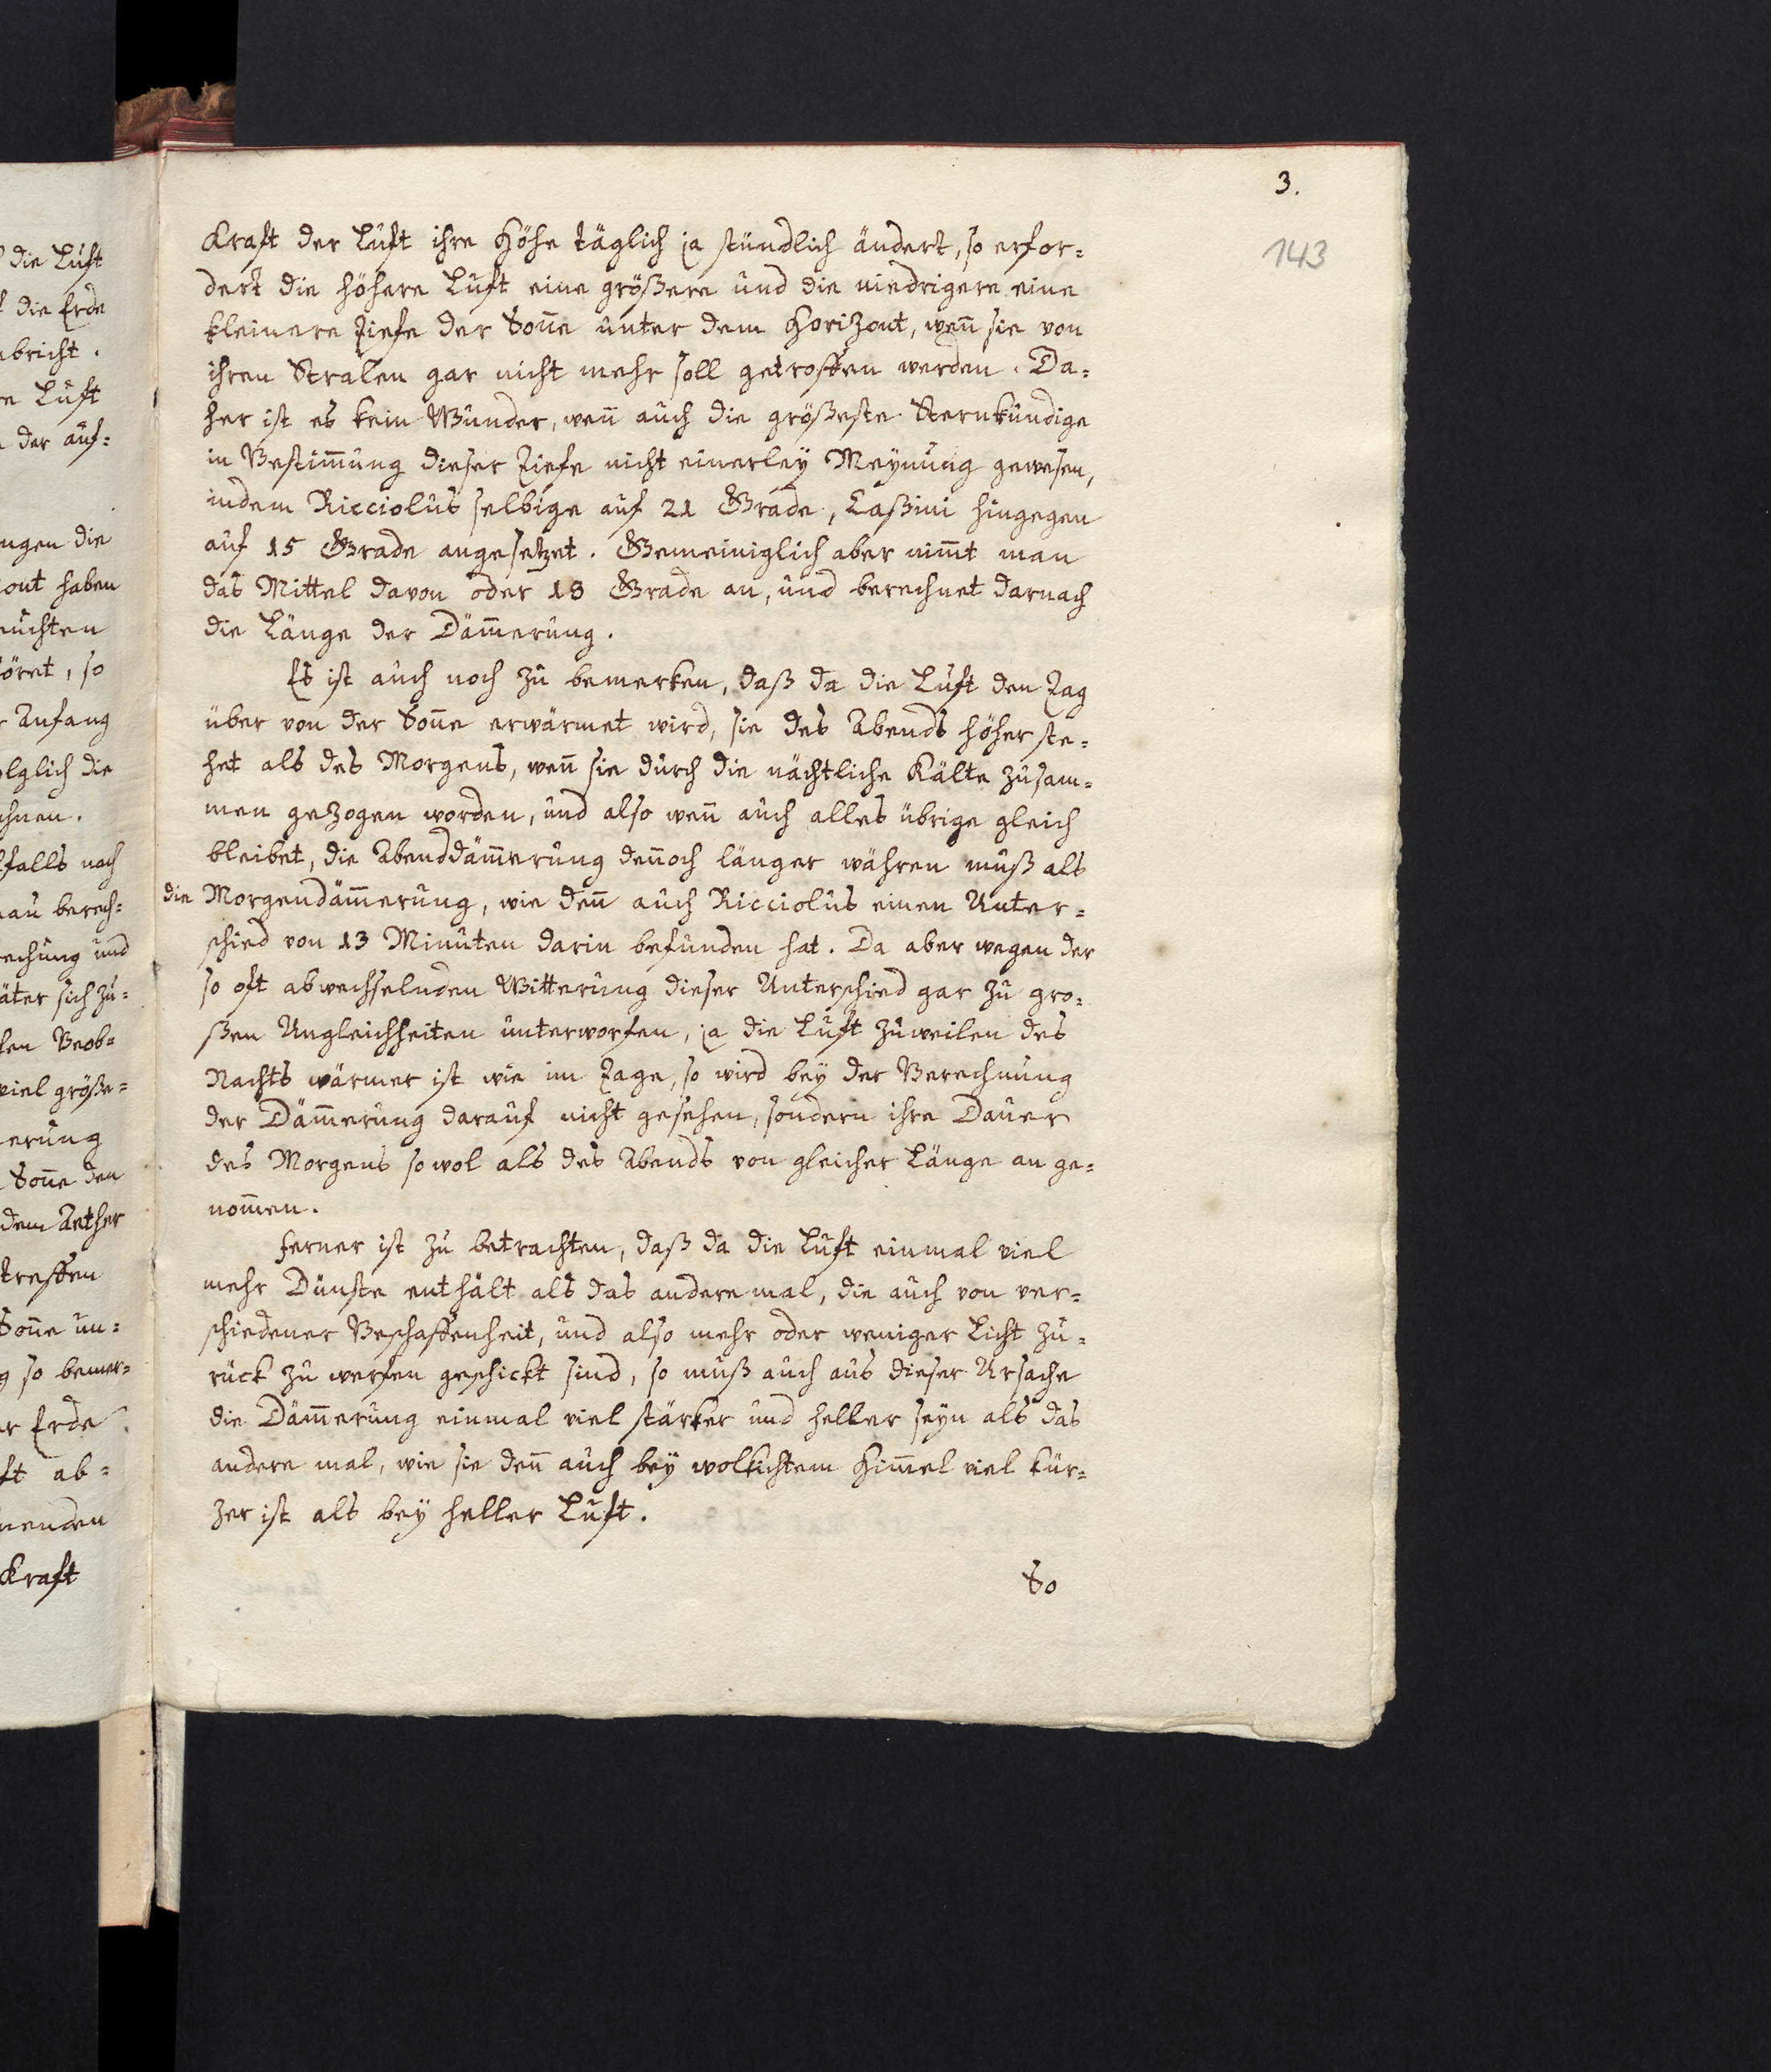 3.
143
Kraft der Luft ihre Höhe täglich ja stündlich ändert, so erfor=
dert die höhere Luft eine größere und die niedrigere eine
kleinere Tiefe der Soñe unter dem Horizont, weñ sie von
ihren Stralen gar nicht mehr soll getroffen werden. Da=
her ist es kein Wunder, weñ auch die größeste Sternkündige
in Bestim̄ung dieser Tiefe nicht einerleÿ Meÿnung gewesen,
indem Ricciolus selbige auf 21 Grade, Caßini hingegen
auf 15 Grade angesetzet. Gemeiniglich aber nim̄t man
das Mittel davon oder 18 Grade an, und berechnet darnach
die Länge der Däm̄erung.
Es ist auch noch zu bemerken, daß da die Luft den Tag
über von der Soñe erwärmet wird, sie des Abends höher ste=
het als des Morgens, weñ sie durch die nächtliche Kälte zusam=
men gezogen worden, und also weñ auch alles übrige gleich
bleibet, die Abenddäm̄erung deñoch länger währen muß als
die Morgendäm̄erung, wie deñ auch Ricciolus einen Unter=
schied von 13 Minuten darin befunden hat. Da aber wegen der
so oft abwechselnden Witterung dieser Unterschied gar zu gro=
ßen Ungleichheiten unterworfen, ja die Luft zuweilen des
Nachts wärmer ist wie im Tage, so wird beÿ der Berechnung
der Däm̄erung darauf nicht gesehen, sondern ihre Dauer
des Morgens so wol als des Abends von gleicher Länge an ge=
nom̄en.
Ferner ist zu betrachten, daß da die Luft einmal viel
mehr Dünste enthält als das andere mal, die auch von ver=
schiedener Beschaffenheit, und also mehr oder weniger Licht zu=
rück zu werfen geschickt sind, so muß auch aus dieser Ursache
die Däm̄erung einmal viel stärker und heller seÿn als das
andere mal, wie sie deñ auch beÿ wolkichtem Him̄el viel kür=
zer ist als beÿ heller Luft.
So